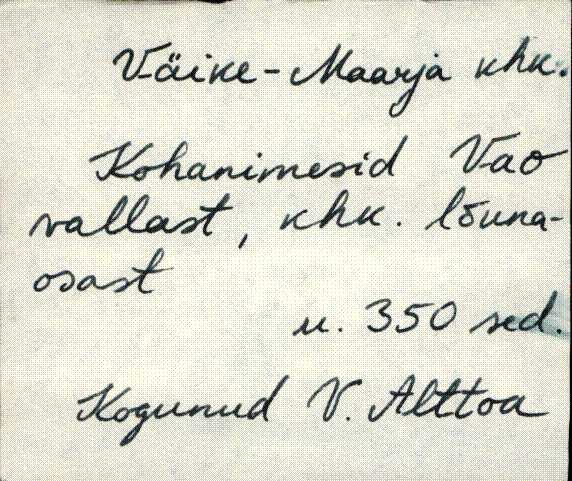 Väike-Maarja khk.
Kohanimesid Vao
vallast, khk. lõuna-
osast
u. 350 sed.
Kogunud V. Alttoa